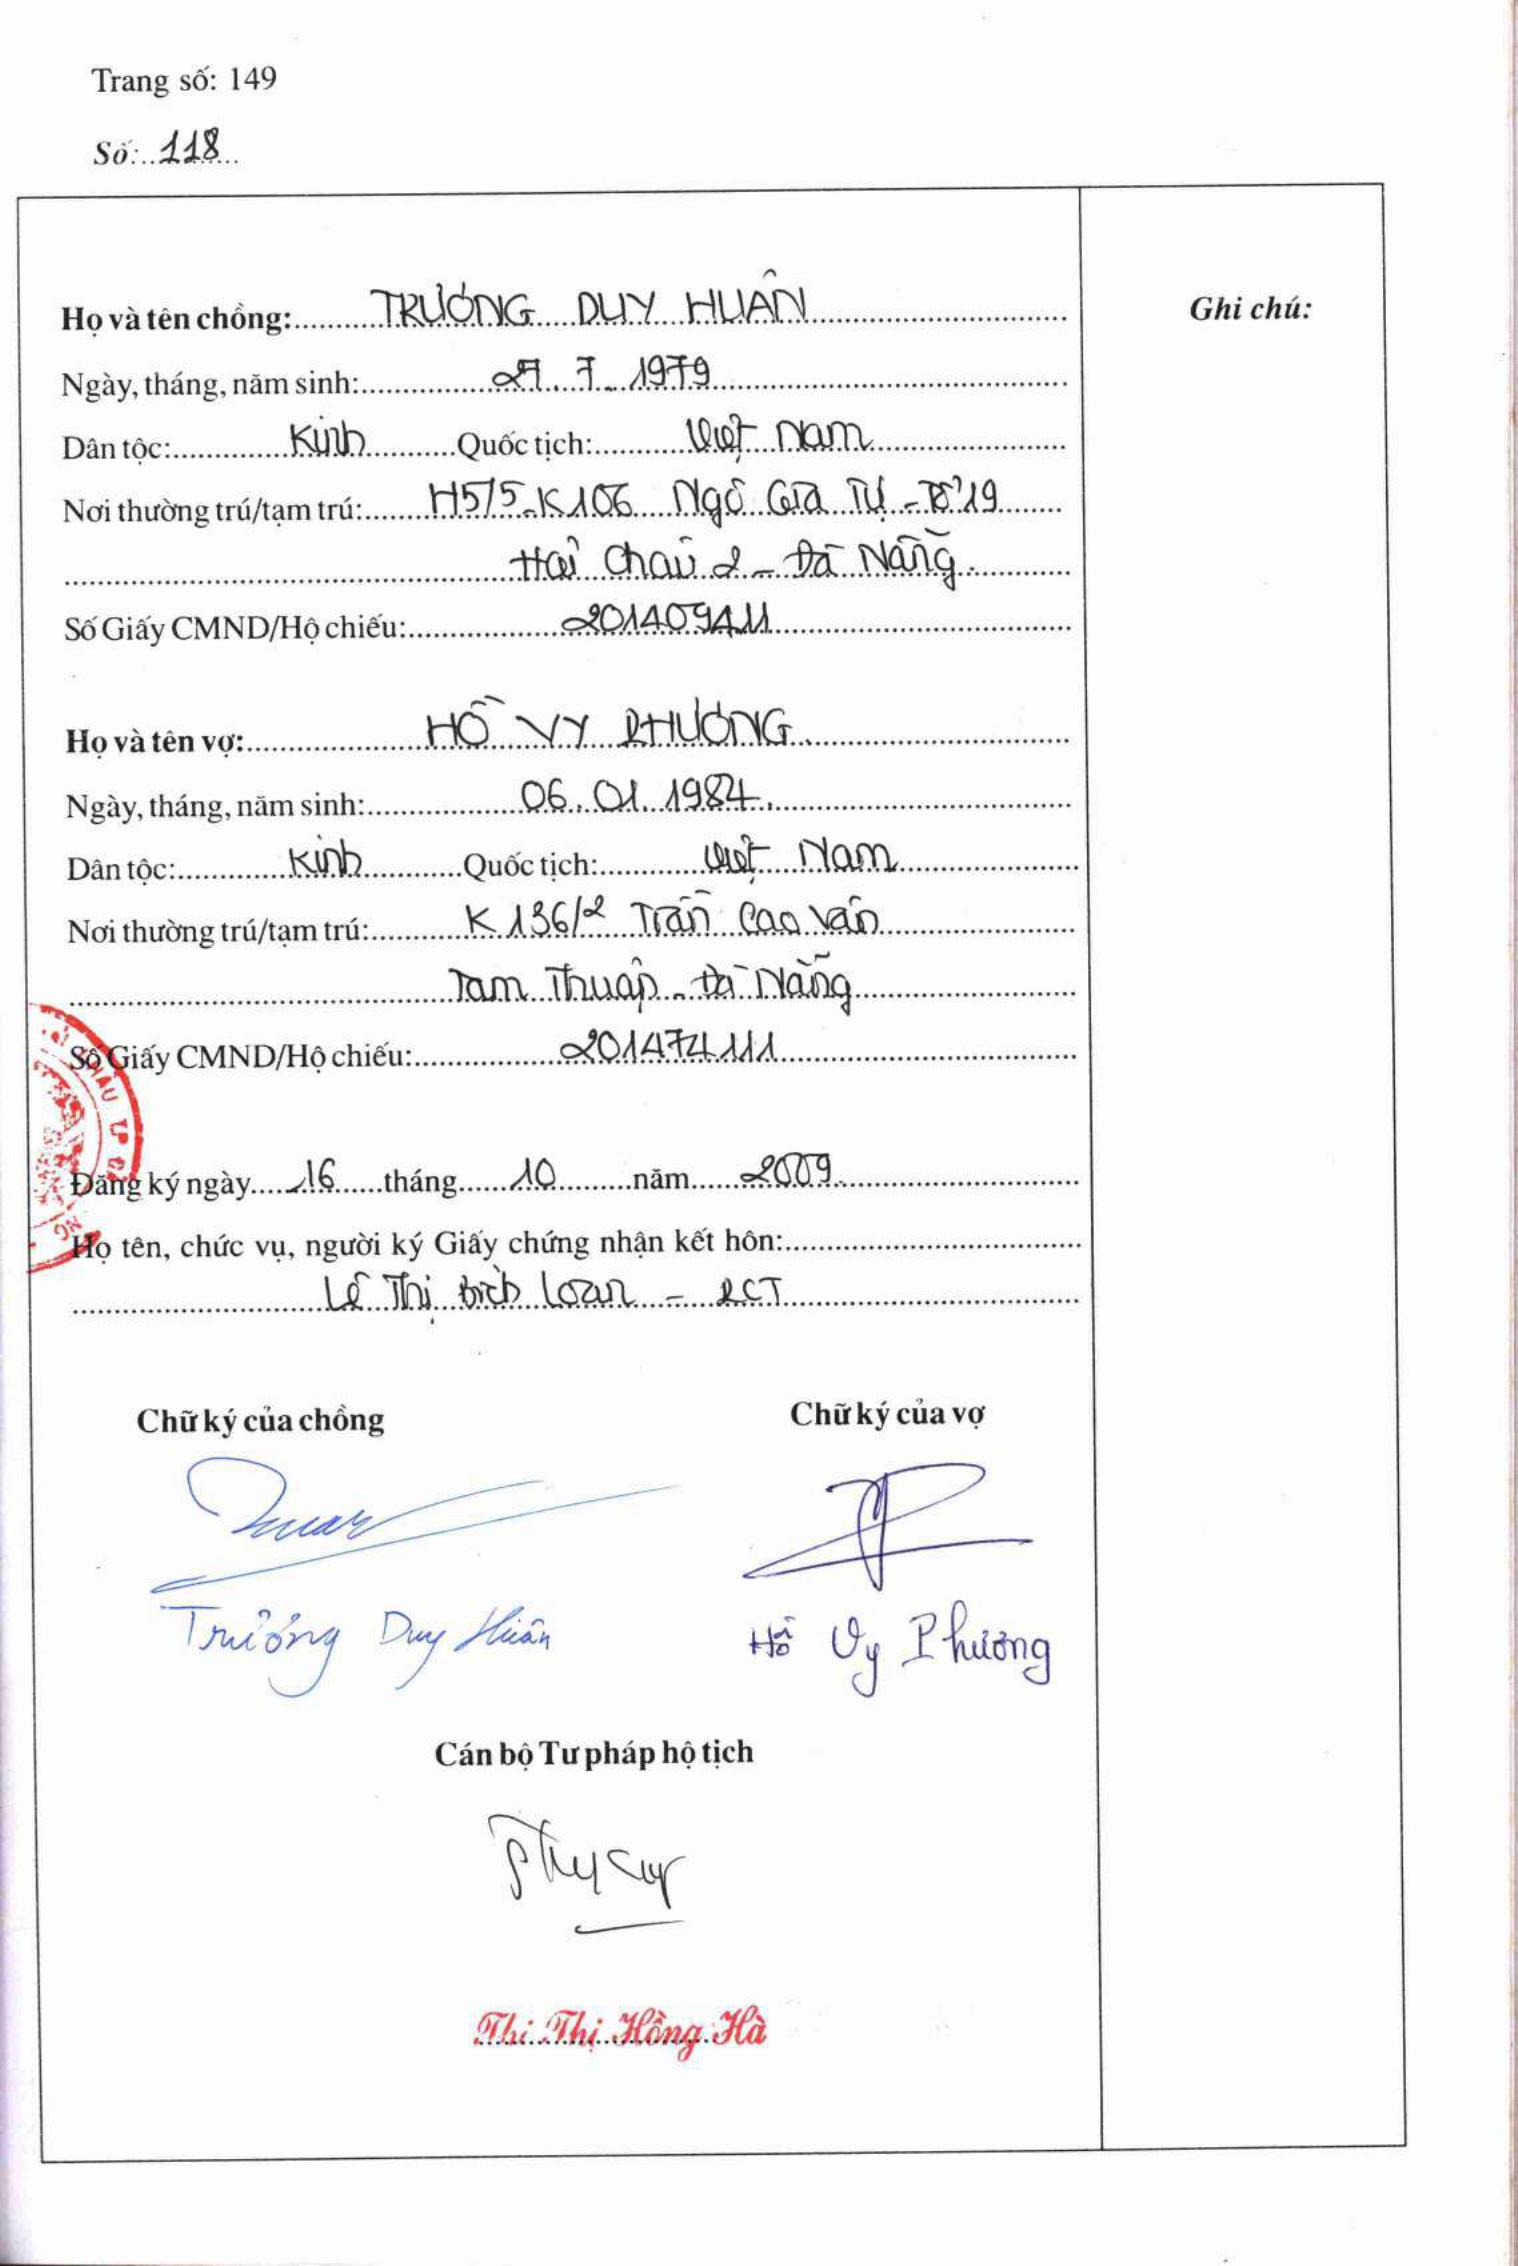 Trang số: 149
Số: 118
Họ và tên chồng: TRƯƠNG DUY HUÂN
Ghi chú:
Ngày, tháng, năm sinh: 27. 7. 1979
Dân tộc: Kinh Quốc tịch: Việt Nam
Nơi thường trú/tạm trú: H5/5-K106 Ngô Gia Tự - Tổ 19
Hải Châu 2 - Đà Nẵng.
Số Giấy CMND/Hộ chiếu: 201409411
Họ và tên vợ: HỒ VY PHƯƠNG
Ngày, tháng, năm sinh: 06. 01. 1984.
Dân tộc: Kinh Quốc tịch: Việt Nam
Nơi thường trú/tạm trú: K 136/2 Trần Cao Vân
Tam Thuận - Đà Nẵng
Số Giấy CMND/Hộ chiếu: 201474111
Đăng ký ngày 16 tháng 10 năm 2009
Họ tên, chức vụ, người ký Giấy chứng nhận kết hôn:
Lê Thị Bích Loan - PCT
Chữ ký của chồng Chữ ký của vợ
Trương Duy Huân Hồ Vy Phương
Cán bộ Tư pháp hộ tịch
Thi Thị Hồng Hà